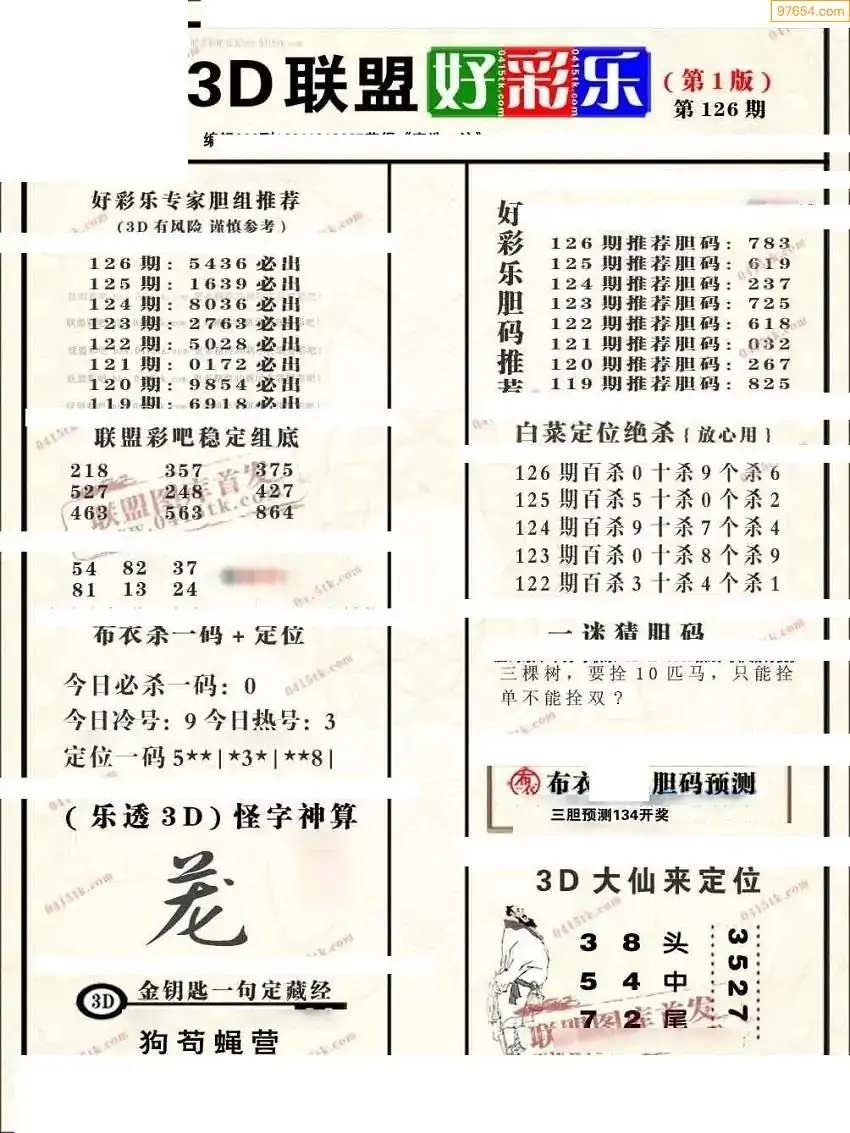 97654.com
3D联盟好彩乐
(第1版)
第126期
好彩乐专家胆组推荐
(3D有风险 谨慎参考)
126期: 5436必出
125期: 1639必出
124期: 8036必出
123期: 2763必出
122期: 5028必出
121期: 0172必出
120期: 9854必出
119期: 6918必出
联盟彩吧稳定组底
218 357 375
527 248 427
463 563 864
54 82 37
81 13 24
布衣杀一码+定位
今日必杀一码: 0
今日冷号: 9 今日热号: 3
定位一码5**|*3*|**8|
(乐透3D)怪字神算
3D 金钥匙一句定藏经
狗苟蝇营
好彩乐胆码推荐
126期推荐胆码: 783
125期推荐胆码: 619
124期推荐胆码: 237
123期推荐胆码: 725
122期推荐胆码: 618
121期推荐胆码: 032
120期推荐胆码: 267
119期推荐胆码: 825
白菜定位绝杀{放心用}
126期百杀0十杀9个杀6
125期百杀5十杀0个杀2
124期百杀9十杀7个杀4
123期百杀0十杀8个杀9
122期百杀3十杀4个杀1
一迷猜胆码
三棵树，要拴10匹马，只能拴
单不能拴双？
布衣 胆码预测
三胆预测134开奖
3D大仙来定位
3 8 头
5 4 中
7 2 尾
3527
联盟图库首发
www.0415tk.com
0415tk.com